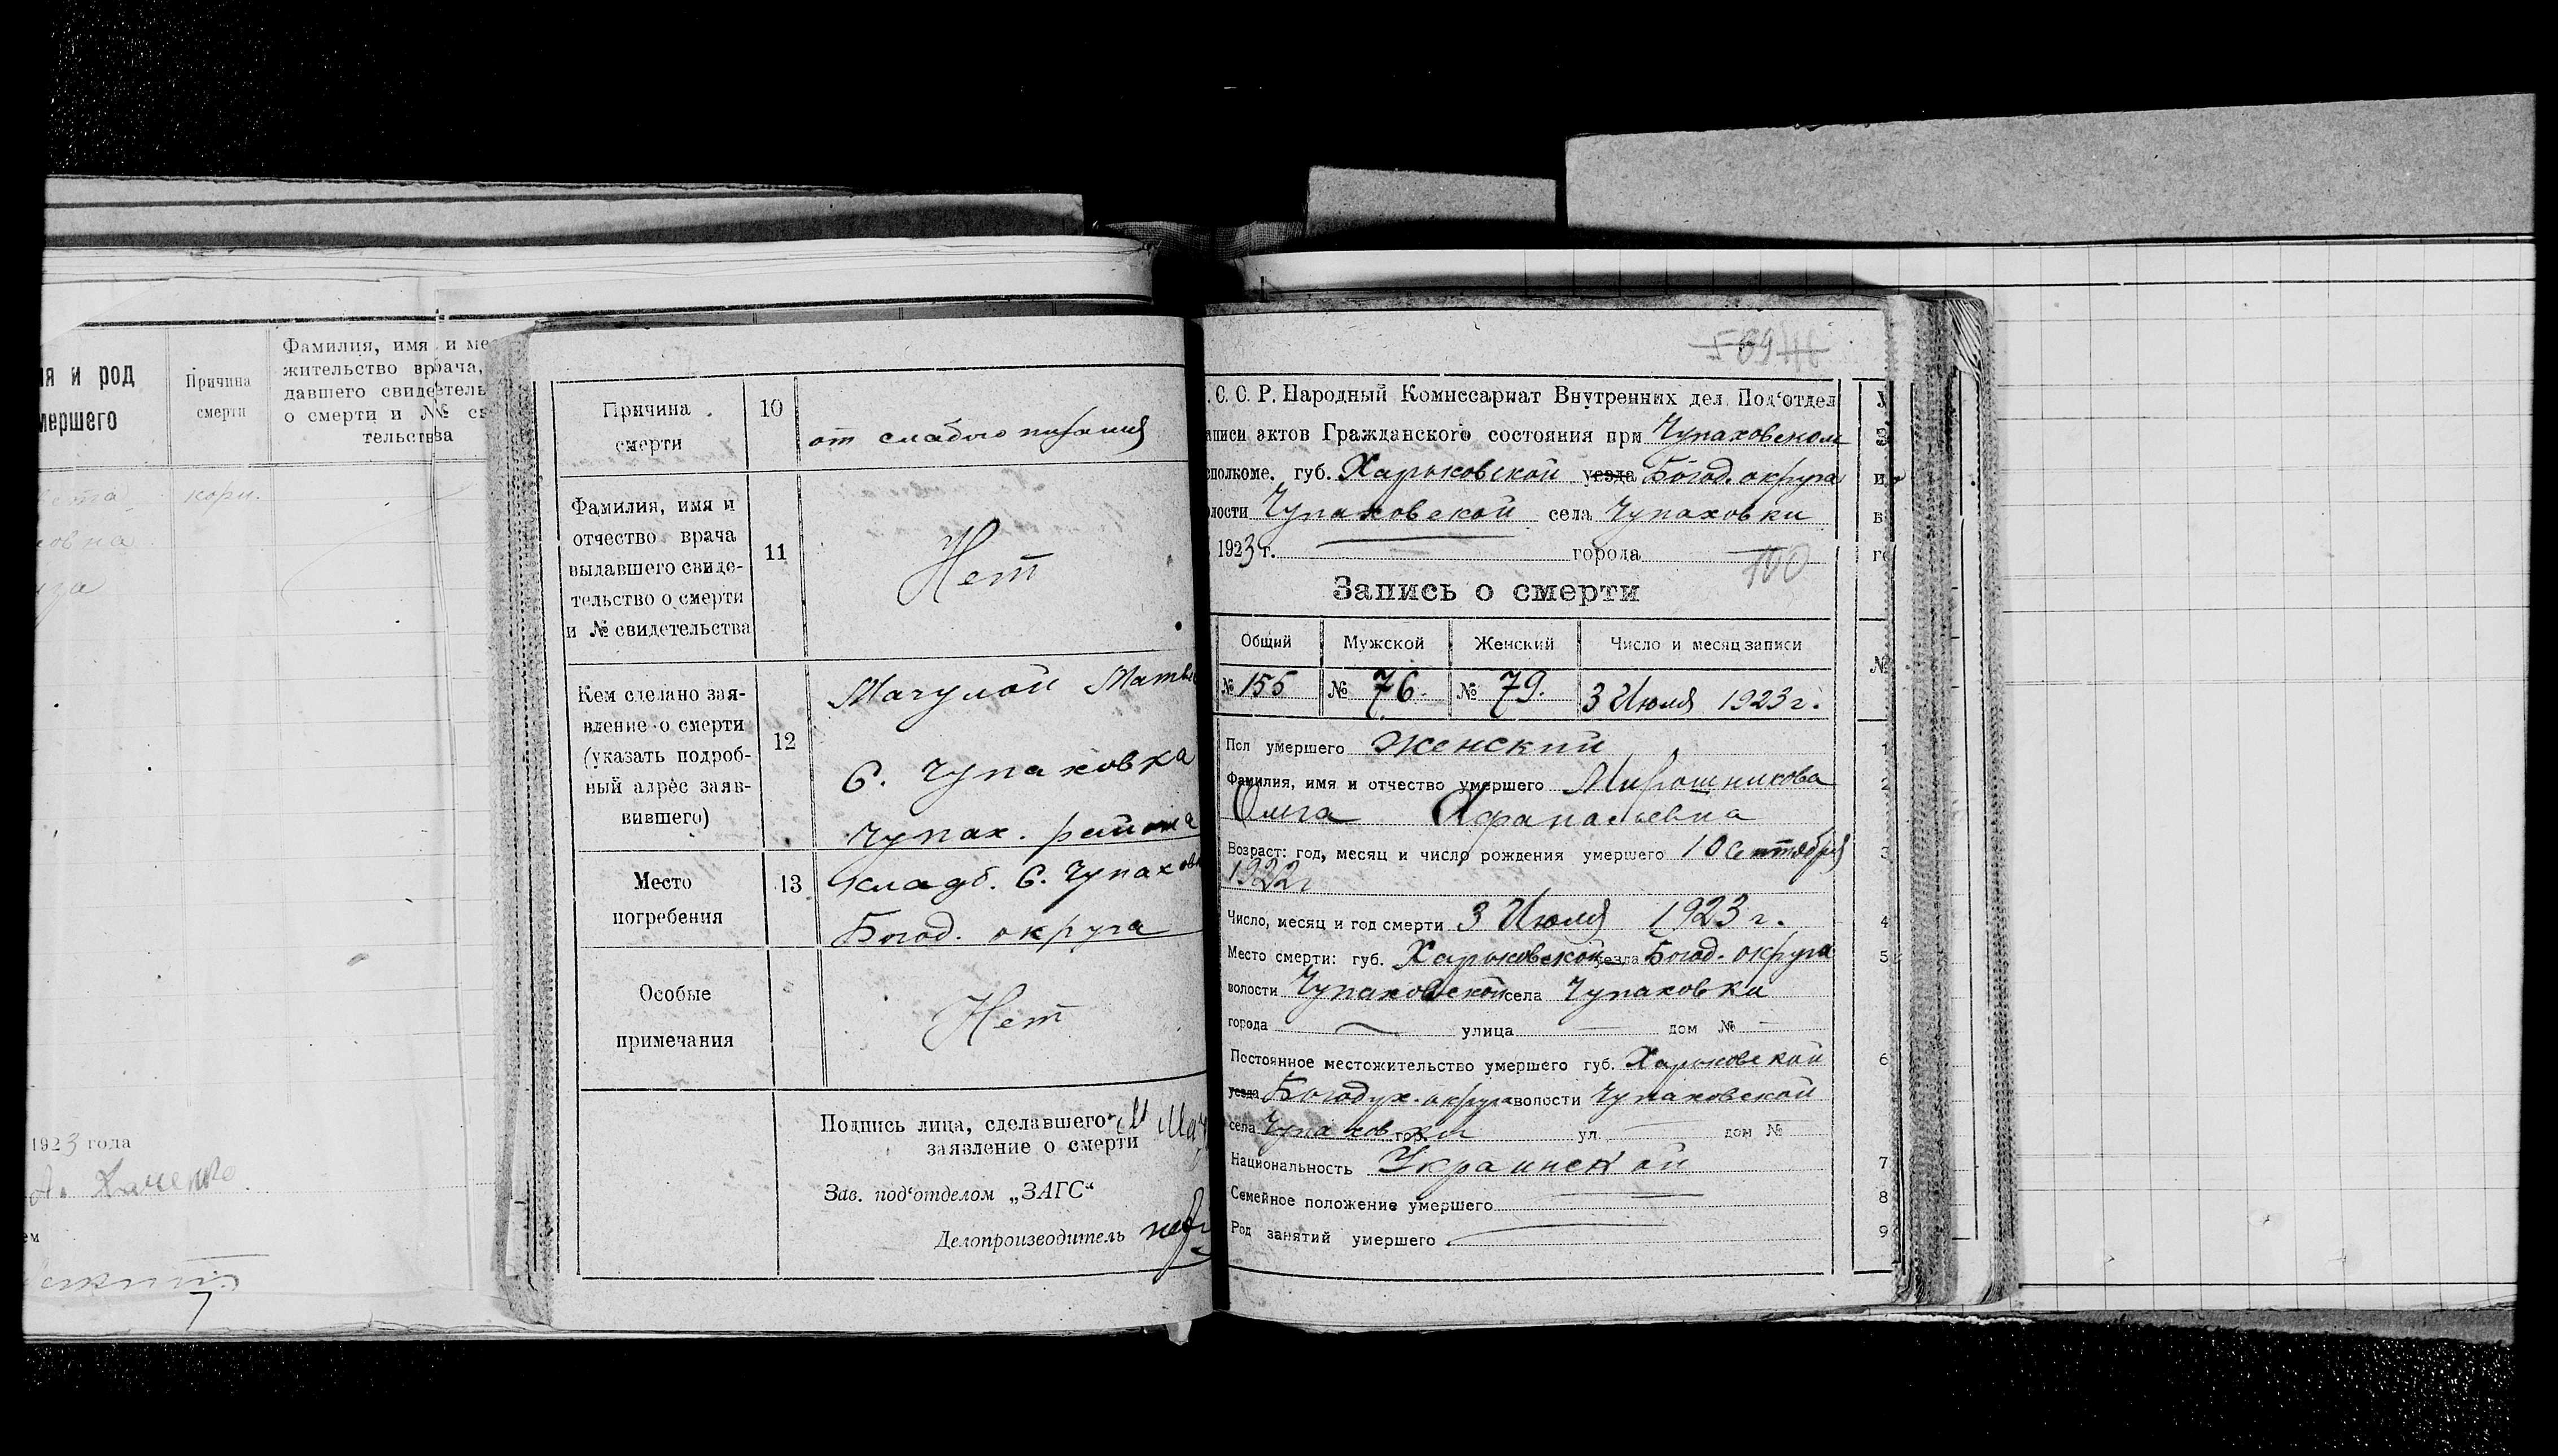 ия и род
мершего
Причина
смерти
Фамилия, имя и ме
жительство врача,
давшего свидетель
о смерти и № св
тельства
корь.
овна
1923 года
Причина
смерти
10
от слабого питания
Фамилия, имя и
отчество врача
выдавшего свиде-
тельство о смерти
и № свидетельства
11
Нет
Кем сделано зая-
вление о смерти
(указать подроб-
ный адрес заяв-
вившего)
12
Магулой Матв
С. Чупаховка
Чупах. района
Место
погребения
13
кладб. С. Чупахов
Богод. округа
Особые
примечания
Нет
Подпись лица, сделавшего
заявление о смерти
Зав. под'отделом „ЗАГС“
Делопроизводитель
. С. С. Р. Народный Комиссариат Внутренних дел Под'отдел
аписи актов Гражданского состояния при Чупаховском
сполкоме, губ. Харьковской уезда Богод. округа
лости Чупаховской села Чупаховки
1923 г. города
100
Запись о смерти
Общий Мужской Женский Число и месяц записи
№ 155 № 76. № 79. 3 Июля 1923 г.
Пол умершего Женский
Фамилия, имя и отчество умершего Мирошникова
Ольга Афанасьевна
Возраст: год, месяц и число рождения умершего 10 Сентября
1922 г
Число, месяц и год смерти 3 Июля 1923 г.
Место смерти: губ. Харьковской уезда Богод. округа
волости Чупаховской села Чупаховки
города улица дом №
Постоянное местожительство умершего губ. Харьковской
уезда Богодух. округа волости Чупаховской
села Чупаховки гор. ул. дом №
Национальность Украинской
Семейное положение умершего
Род занятий умершего
№
1
2
3
4
5
6
7
8
9